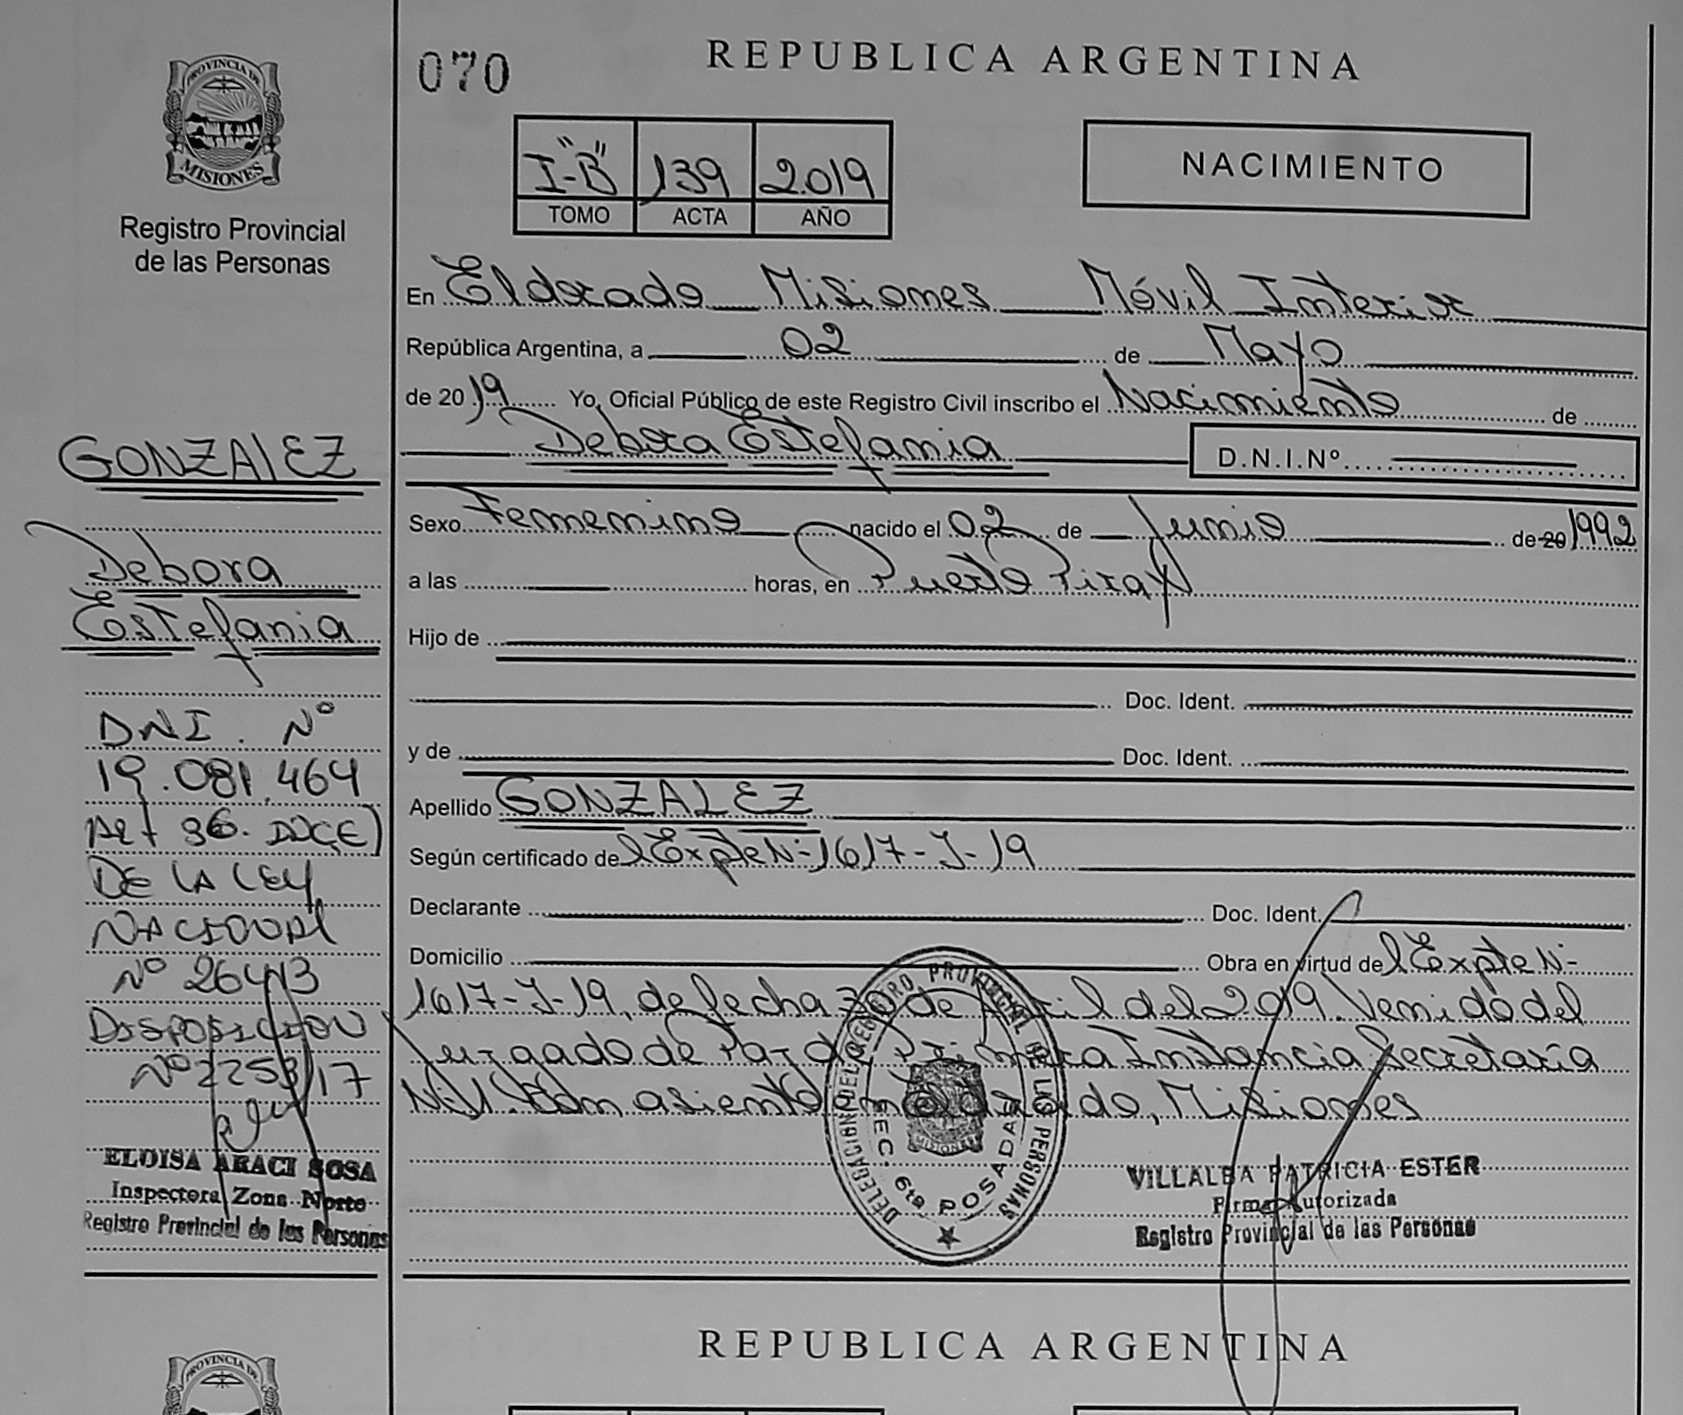 PROVINCIA DE
MISIONES
Registro Provincial
de las Personas
GONZALEZ
Debora
Estefania
DNI. Nº
19.081.464
ART 36. DOCE)
DE LA LEY
NACIONAL
Nº 26413
DISPOSICION
Nº 2253/17
ELOISA ARACI SOSA
Inspectora Zona Norte
Registro Provincial de las Personas
070
REPUBLICA ARGENTINA
I-"B" 139 2.019
TOMO ACTA AÑO
NACIMIENTO
En Eldorado Misiones Móvil Interior
República Argentina, a 02 de Mayo
de 2019 Yo, Oficial Público de este Registro Civil inscribo el Nacimiento de
Debora Estefania D.N.I.Nº
Sexo Femenino nacido el 02 de Junio de 20 1992
a las horas, en Puerto Piray
Hijo de
Doc. Ident.
y de Doc. Ident.
Apellido GONZALEZ
Según certificado de l Expte Nº 1617-J-19
Declarante Doc. Ident.
Domicilio Obra en virtud de l Expte Nº
1617-J-19, de fecha de Abril del 2019. Venido del
Juzgado de Paz de Primera Instancia Secretaría
Nº 1. Con asiento en Eldorado, Misiones
DELEGACION DEL REGISTRO PROVINCIAL DE LAS PERSONAS
SEC. 6ta POSADAS
MISIONES
VILLALBA PATRICIA ESTER
Firma Autorizada
Registro Provincial de las Personas
PROVINCIA DE
REPUBLICA ARGENTINA